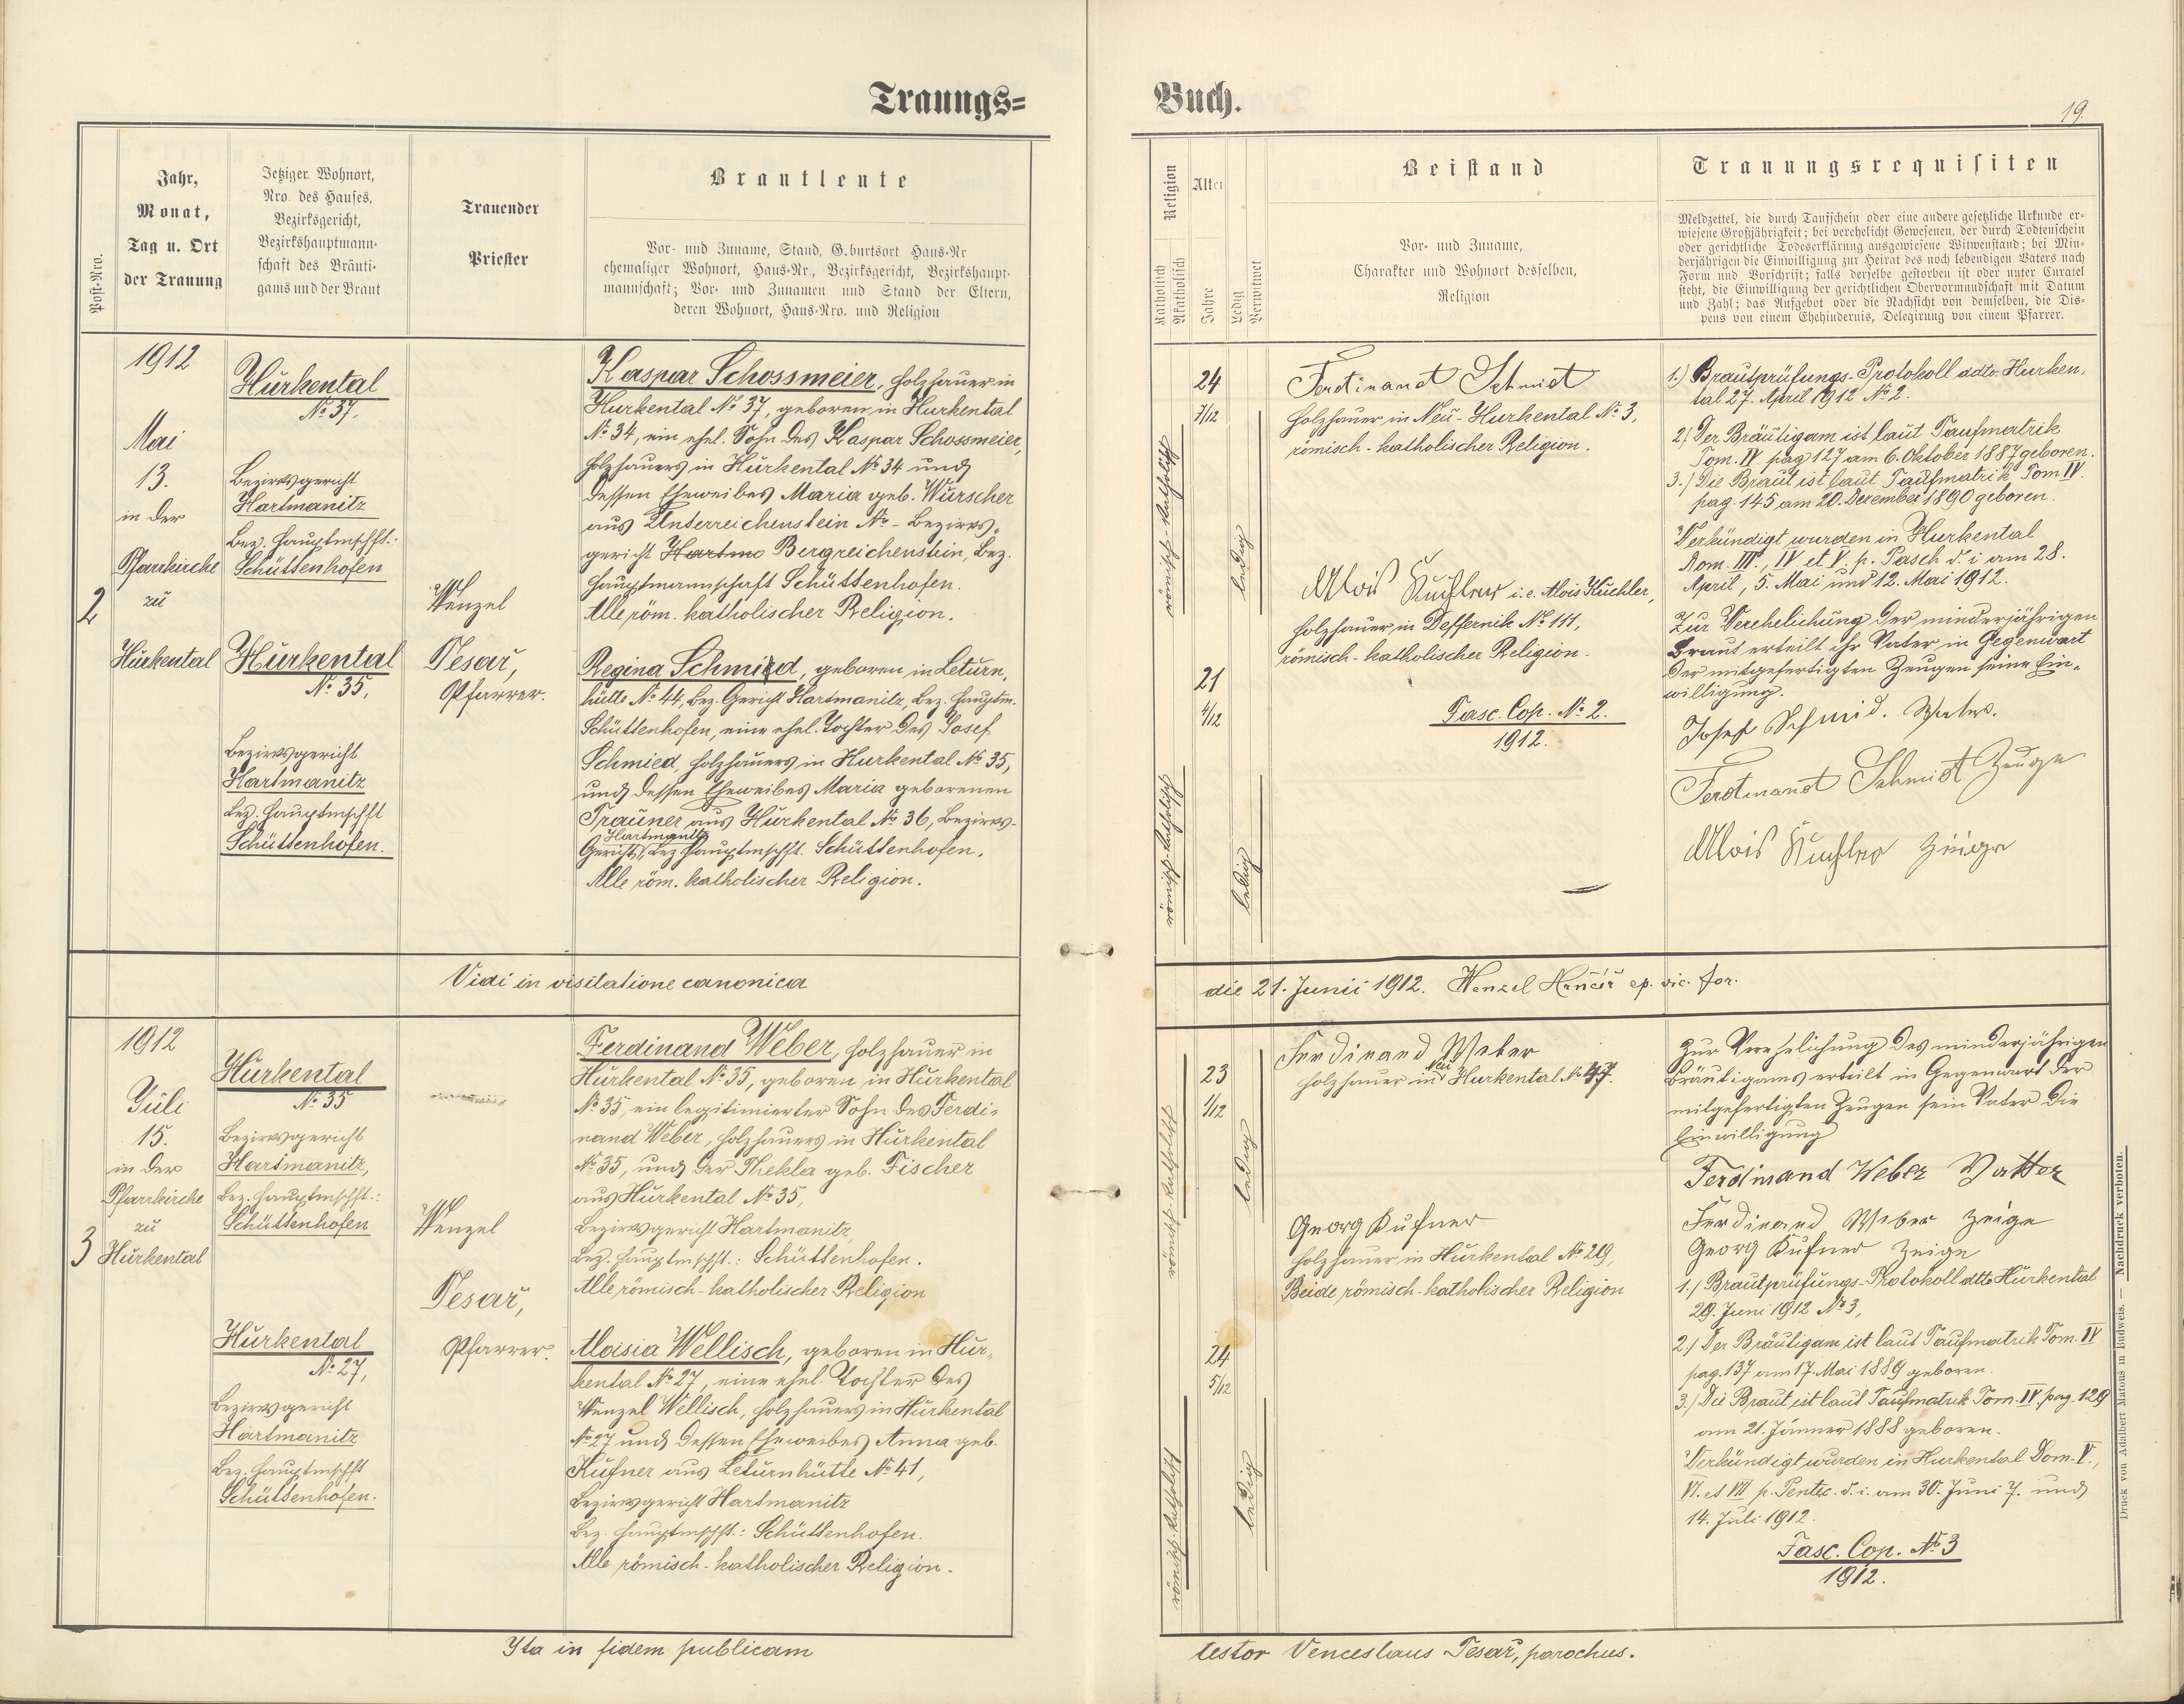 Trauungs=
Buch.
19.
Post-Nro.
Jahr,
Monat,
Tag u. Ort
der Trauung
Jetziger Wohnort,
Nro. des Hauses,
Bezirksgericht,
Bezirkshauptmann-
schaft des Bräuti-
gams und der Braut
Trauender
Priester
Brautleute
Vor- und Zuname, Stand, G.burtsort Haus-Nr
ehemaliger Wohnort, Haus-Nr., Bezirksgericht, Bezirkshaupt-
mannschaft; Vor- und Zunamen und Stand der Eltern,
deren Wohnort, Haus-Nro. und Religion
Religion
Katholisch
Akatholisch
Alter
Jahre
Ledig
Verwitwet
Beistand
Vor- und Zuname,
Charakter und Wohnort desselben,
Religion
Trauungsrequisiten
Meldzettel, die durch Taufschein oder eine andere gesetzliche Urkunde er-
wiesene Großjährigkeit; bei verehelicht Gewesenen, der durch Todtenschein
oder gerichtliche Todeserklärung ausgewiesene Witwenstand; bei Min-
derjährigen die Einwilligung zur Heirat des noch lebendigen Vaters nach
Form und Vorschrift; falls derselbe gestorben ist oder unter Curatel
steht, die Einwilligung der gerichtlichen Obervormundschaft mit Datum
und Zahl; das Aufgebot oder die Nachsicht von demselben, die Dis-
pens von einem Ehehindernis, Delegirung von einem Pfarrer.
2
1912
Mai
13.
in der
Pfarrkirche
zu
Hurkental
Hurkental
No 37.
Bezirksgericht
Hartmanitz
Bez. Hauptmschft.:
Schüttenhofen
Hurkental
No 35,
Bezirksgericht
Hartmanitz
Bez. Hauptmschft
Schüttenhofen.
Wenzel
Tesař,
Pfarrer.
Kaspar Schossmeier, Holzhauer in
Hurkental No 37, geboren in Hurkental
No 34, ein ehel. Sohn des Kaspar Schossmeier,
Holzhauers in Hurkental No 34 und
dessen Eheweibes Maria geb. Wurscher
aus Unterreichenstein No - Bezirks-
gericht Hartma Bergreichenstein, Bez.
Hauptmannschaft Schüttenhofen.
Alle röm. katholischer Religion.
Regina Schmied, geboren in Leturn,
hütte No 44, Bez. Gericht Hartmanitz, Bez. Hauptm.
Schüttenhofen, eine ehel. Tochter des Josef
Schmied, Holzhauers in Hurkental No 35,
und dessen Eheweibes Maria geborenen
Trauner aus Hurkental No 36, Bezirks-
Hartmanitz
Gericht, Bez. Hauptmschft. Schüttenhofen.
Alle röm. katholischer Religion.
römisch-katholisch
24
7/12
ledig
römisch-katholisch
21
4/12
ledig
Ferdinand Schmidt
Holzhauer in Neu-Hurkental No 3,
römisch-katholischer Religion.
Alois Kuchler i.e. Alois Kuchler,
Holzhauer in Deffernik No 111,
römisch-katholischer Religion.
Fasc. Cop. No 2.
1912.
1.) Brautprüfungs-Protokoll ddto. Hurken-
tal 27. April 1912 No 2.
2.) Der Bräutigam ist laut Taufmatrik
Tom. IV. pag 127 am 6. Oktober 1887 geboren.
3.) Die Braut ist laut Taufmatrik Tom IV.
pag. 145 am 20. Dezember 1890 geboren.
Verkündigt wurden in Hurkental
Dom. III., IV et V. p. Pasch d. i am 28.
April, 5. Mai und 12. Mai 1912.
Zur Verehelichung der minderjährigen
Braut erteilt ihr Vater in Gegenwart
der mitgefertigten Zeugen seine Ein-
willigung.
Josef Schmid. Vater.
Ferdinand Schmidt Zeuge
Alois Kuchler Zeuge
Vidi in visitatione canonica
die 21. Junii 1912. Wenzel Hrnčíř ep. vic. for.
3
1912
Juli
15.
in der
Pfarrkirche
zu
Hurkental
Hurkental
No 35
Bezirksgericht
Hartmanitz,
Bez. Hauptmschft.:
Schüttenhofen
Hurkental
No 27,
Bezirksgericht
Hartmanitz
Bez. Hauptmschft
Schüttenhofen.
Wenzel
Tesař,
Pfarrer.
Ferdinand Weber, Holzhauer in
Hurkental No 35, geboren in Hurkental
No 35, ein legitimierter Sohn des Ferdi-
nand Weber, Holzhauers in Hurkental
No 35, und der Thekla geb. Fischer
aus Hurkental No 35,
Bezirksgericht Hartmanitz,
Bez. Hauptmschft.: Schüttenhofen.
Alle römisch-katholischer Religion
Aloisia Wellisch, geboren in Hur-
kental No 27, eine ehel. Tochter des
Wenzel Wellisch, Holzhauers in Hurkental
No 27 und dessen Eheweibes Anna geb.
Kufner aus Leturnhütte No 41,
Bezirksgericht Hartmanitz
Bez. Hauptmschft.: Schüttenhofen.
Alle römisch-katholischer Religion.
römisch-katholisch
23
1/12
ledig
römisch-katholisch
24
5/12
ledig
Ferdinand Weber
Neu
Holzhauer in Hurkental No 47.
Georg Kufner
Holzhauer in Hurkental No 29,
Beide römisch-katholischer Religion
Zur Verehelichung des minderjährigen
Bräutigams erteilt in Gegenwart der
mitgefertigten Zeugen sein Vater die
Einwilligung
Ferdinand Weber Vatter
Ferdinand Weber Zeige
Georg Kufner Zeige
1.) Brautprüfungs-Protokoll ddto Hurkental
29. Juni 1912 No 3,
2.) Der Bräutigam ist laut Taufmatrik Tom. IV
pag. 137 am 17. Mai 1889 geboren.
3.) Die Braut ist laut Taufmatrik Tom. IV. pag. 129
am 21. Jänner 1888 geboren.
Verkündigt wurden in Hurkental Dom. V.,
VI. et VII p. Pentec. d. i. am 30. Juni 7. und
14. Juli 1912.
Fasc. Cop. No 3
1912.
Druck von Adalbert Matouš in Budweis. — Nachdruck verboten.
Yta in fidem publicam
testor Venceslaus Tesař, parochus.